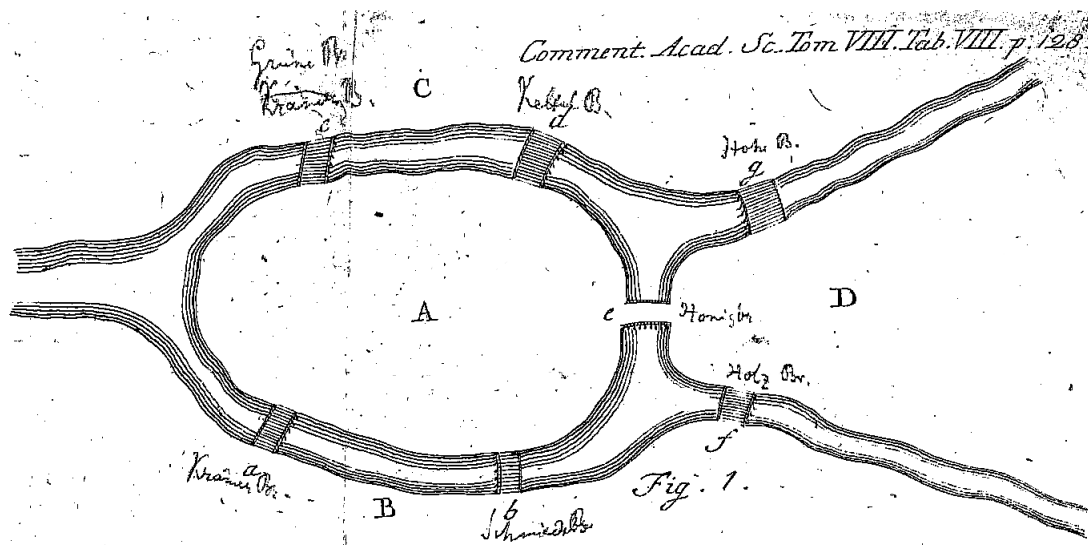 Comment. Acad. Sc. Tom VIII. Tab. VIII. p. 128.
Grüne Br.
Krämer B.
C
c
d
Hohe B.
g
A
D
e
Honigbr
Holz Br.
f
a
Krämer Br.
B
b
Schmiede Br
Fig. 1.